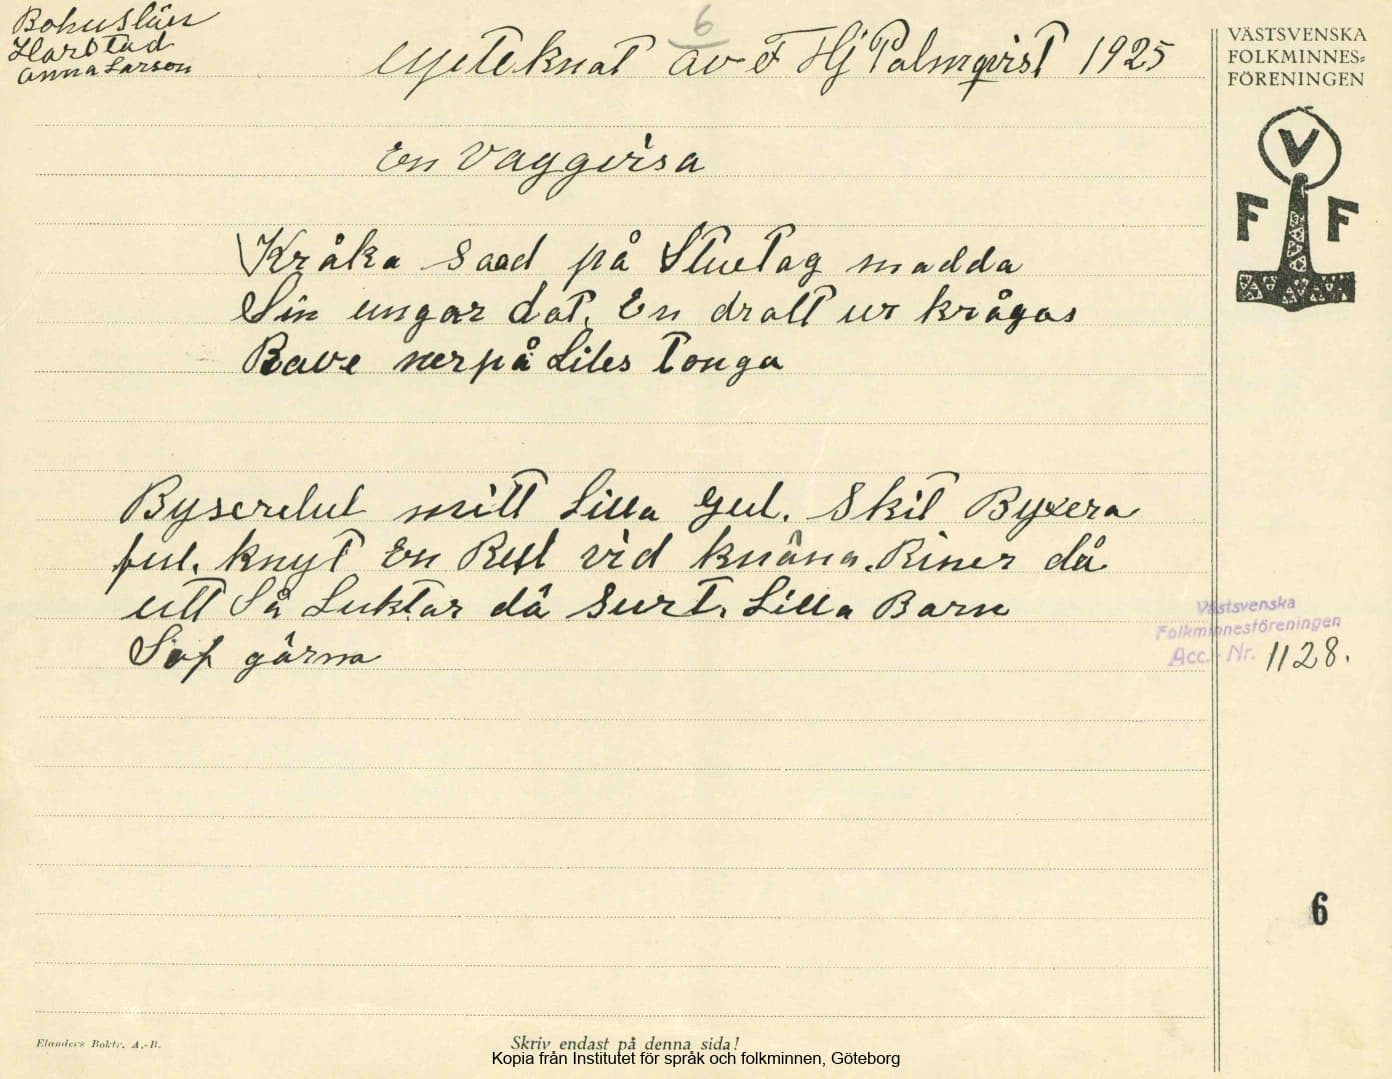 Bohuslän
Harstad
Anna Larson
6
Upteknat av F Hj Palmqvist 1925
VÄSTSVENSKA
FOLKMINNES=
FÖRENINGEN
V
F F
En Vaggvisa
Kråka saad på Stuetag madda
Sin ungar dat. En dratt ur krågas
Rave nerpå Liles Tonga
Byserelul mitt Lilla Gul. Skit Byxera
ful. knyt En Rul vid knäna. Riner då
utt Så Luktar då Surt. Lilla Barn
Sof gärna
Västsvenska
Folkminnesföreningen
Acc.- Nr. 1128.
6
Elanders Boktr. A.-B.
Skriv endast på denna sida!
Kopia från Institutet för språk och folkminnen, Göteborg